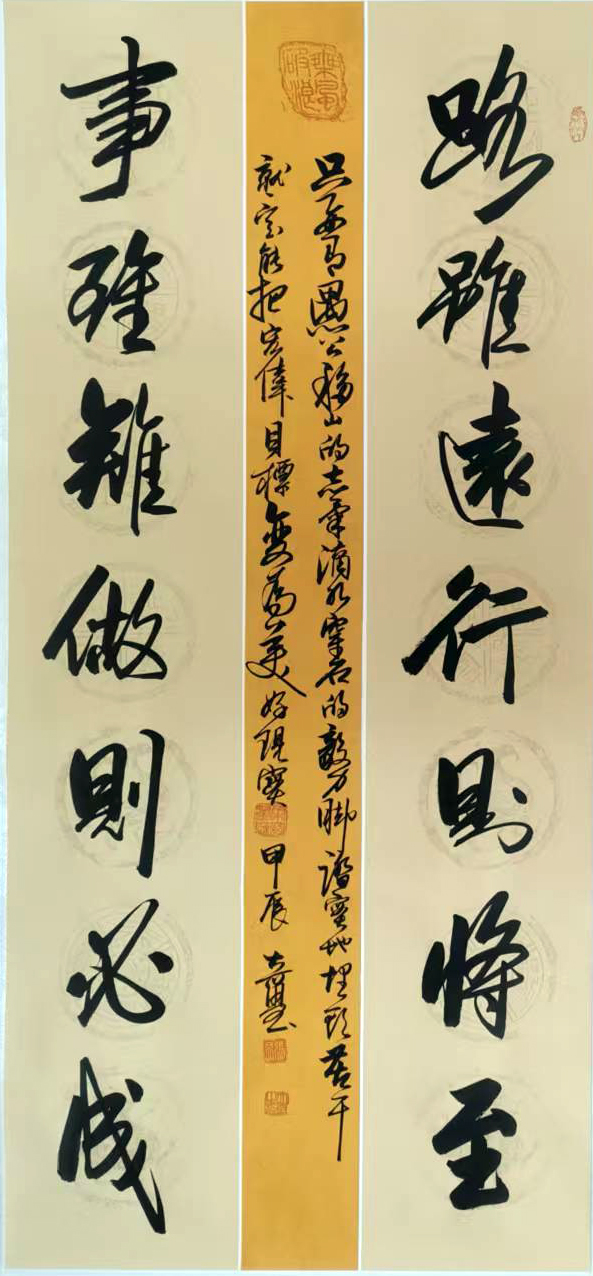 路雖遠行則將至
事雖難做則必成
只要有愚公移山的志氣滴水穿石的毅力腳踏實地埋頭苦干
就定能把宏偉目標變為美好現實
甲辰
乘風破浪